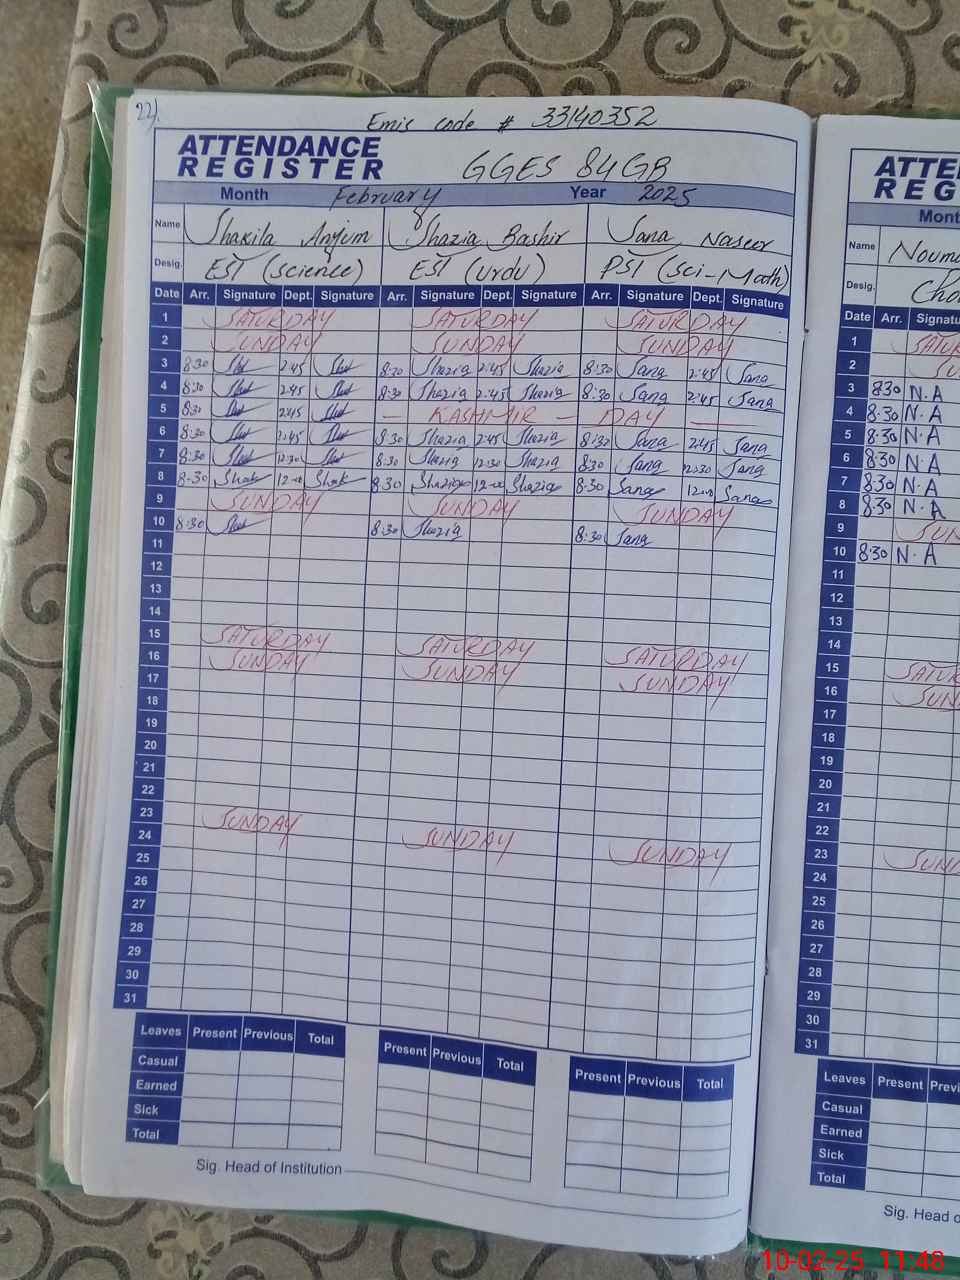 22).
Emis code # 33140352
ATTENDANCE REGISTER GGES 84GB
Month February Year 2025
Name Shakila Anjum Shazia Bashir Sana Naseer
Desig. EST (science) EST (urdu) PST (Sci-Math)
Date Arr. Signature Dept. Signature Arr. Signature Dept. Signature Arr. Signature Dept. Signature
1 SATURDAY SATURDAY SATURDAY
2 SUNDAY SUNDAY SUNDAY
3 8:30 2:45 8:30 Shazia 2:45 Shazia 8:30 Sana 2:45 Sana
4 8:30 2:45 8:30 Shazia 2:45 Shazia 8:30 Sana 2:45 Sana
5 8:30 2:45 — KASHMIR — DAY —
6 8:30 2:45 8:30 Shazia 2:45 Shazia 8:30 Sana 2:45 Sana
7 8:30 12:30 8:30 Shazia 12:30 Shazia 8:30 Sana 12:30 Sana
8 8:30 Shak 12:00 Shak 8:30 Shazia 12:00 Shazia 8:30 Sana 12:00 Sana
9 SUNDAY SUNDAY SUNDAY
10 8:30 8:30 Shazia 8:30 Sana
11
12
13
14
15 SATURDAY SATURDAY SATURDAY
16 SUNDAY SUNDAY SUNDAY
17
18
19
20
21
22
23 SUNDAY SUNDAY SUNDAY
24
25
26
27
28
29
30
31
Leaves Present Previous Total Present Previous Total Present Previous Total
Casual
Earned
Sick
Total
Sig. Head of Institution
ATTE
REG
Mont
Name Noum
Desig. Cho
Date Arr. Signatu
1 SATUR
2 SU
3 830 N.A
4 8:30 N.A
5 8:30 N.A
6 8:30 N.A
7 8:30 N.A
8 8:30 N.A
9 SUN
10 8:30 N.A
11
12
13
14
15 SATUR
16 SUN
17
18
19
20
21
22
23 SUN
24
25
26
27
28
29
30
31
Leaves Present Previ
Casual
Earned
Sick
Total
Sig. Head o
10-02-25 11:48